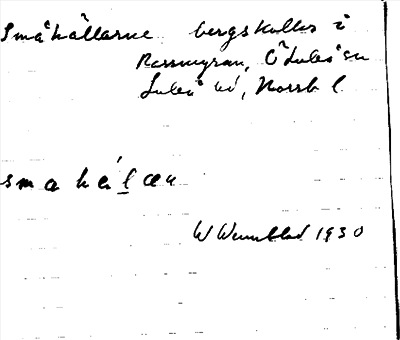 Småhällarne bergskullar i
Rassmyran, Ö Luleå sn
Luleå hd, Norrb l.
smahálan
W Wennblad 1930